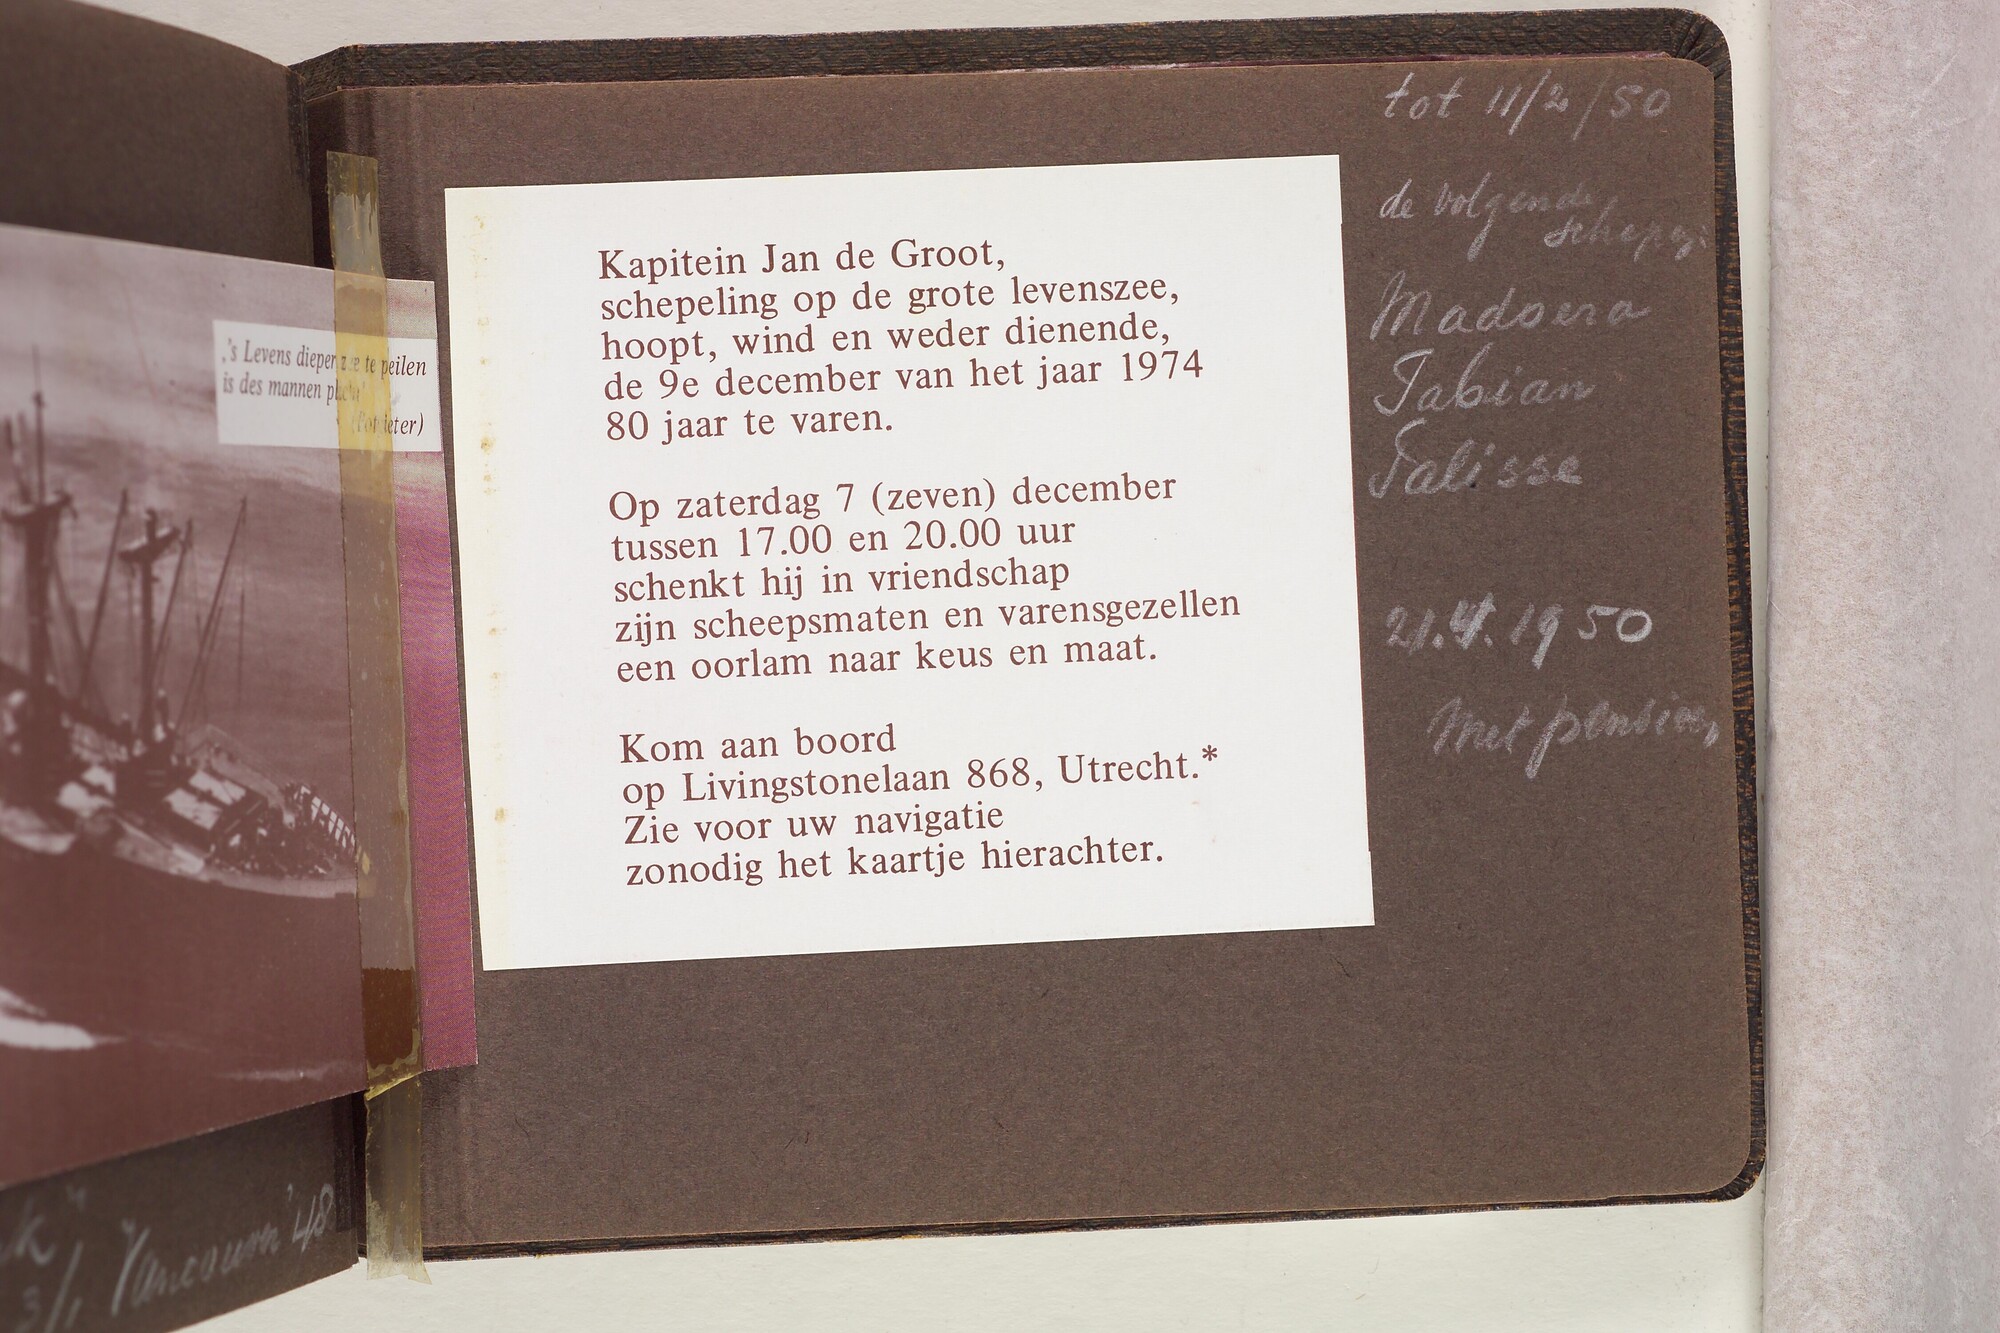 „'s Levens diepen zee te peilen
is des mannen plicht'
(Potgieter)
Kapitein Jan de Groot,
schepeling op de grote levenszee,
hoopt, wind en weder dienende,
de 9e december van het jaar 1974
80 jaar te varen.
Op zaterdag 7 (zeven) december
tussen 17.00 en 20.00 uur
schenkt hij in vriendschap
zijn scheepsmaten en varensgezellen
een oorlam naar keus en maat.
Kom aan boord
op Livingstonelaan 868, Utrecht.*
Zie voor uw navigatie
zonodig het kaartje hierachter.
tot 11/2/50
de volgende
schepen:
Madoera
Tabian
Talisse
21.4.1950
Met pensioen
Vancouver '48